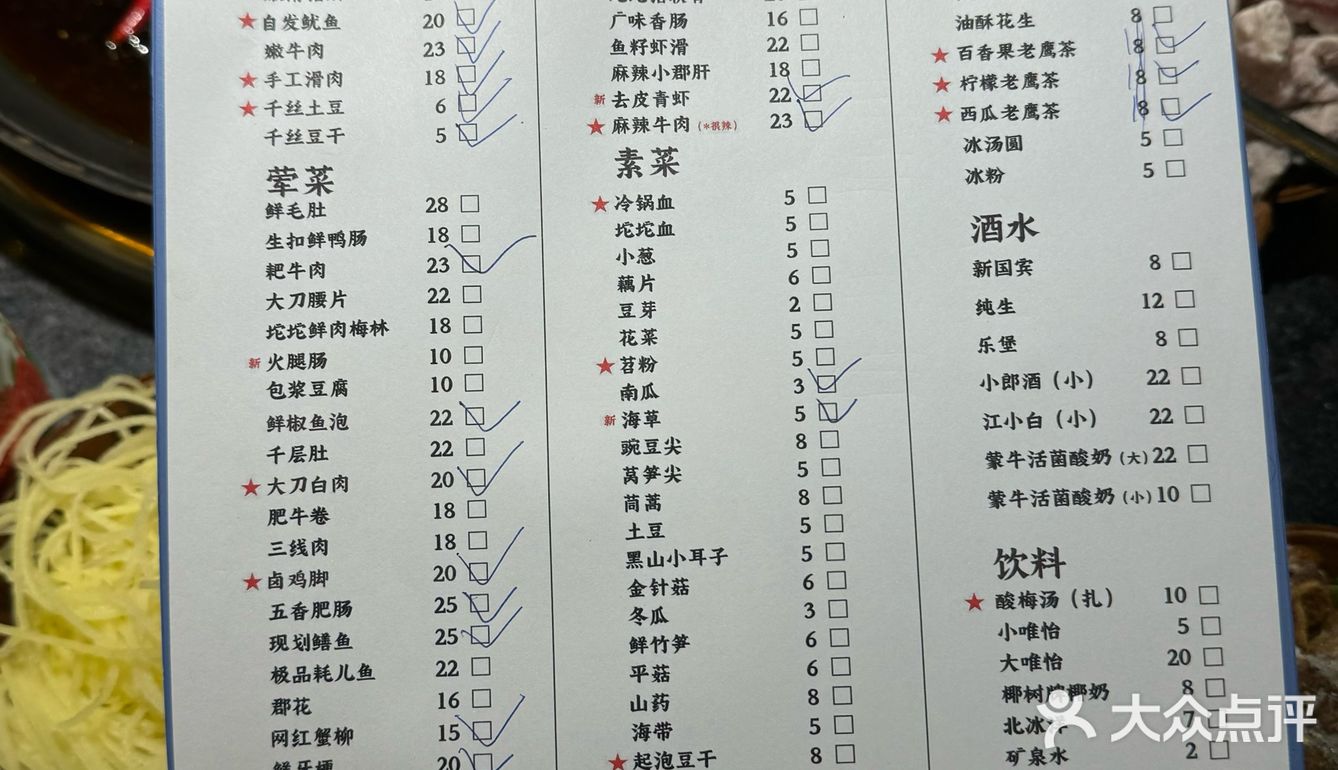 自发鱿鱼 20
嫩牛肉 23
手工滑肉 18
千丝土豆 6
千丝豆干 5
荤菜
鲜毛肚 28
生扣鲜鸭肠 18
耙牛肉 23
大刀腰片 22
坨坨鲜肉梅林 18
新 火腿肠 10
包浆豆腐 10
鲜椒鱼泡 22
千层肚 22
大刀白肉 20
肥牛卷 18
三线肉 18
卤鸡脚 20
五香肥肠 25
现划鳝鱼 25
极品耗儿鱼 22
郡花 16
网红蟹柳 15
20
广味香肠 16
鱼籽虾滑 22
麻辣小郡肝 18
新 去皮青虾 22
麻辣牛肉(*很辣) 23
素菜
冷锅血 5
坨坨血 5
小葱 5
藕片 6
豆芽 2
花菜 5
苕粉 5
南瓜 3
新 海草 5
豌豆尖 8
莴笋尖 5
茼蒿 8
土豆 5
黑山小耳子 5
金针菇 6
冬瓜 3
鲜竹笋 6
平菇 6
山药 8
海带 5
起泡豆干 8
油酥花生 8
百香果老鹰茶 8
柠檬老鹰茶 8
西瓜老鹰茶 8
冰汤圆 5
冰粉 5
酒水
新国宾 8
纯生 12
乐堡 8
小郎酒（小） 22
江小白（小） 22
蒙牛活菌酸奶(大) 22
蒙牛活菌酸奶(小) 10
饮料
酸梅汤（扎） 10
小唯怡 5
大唯怡 20
椰树牌椰奶 8
北冰 7
矿泉水 2
大众点评